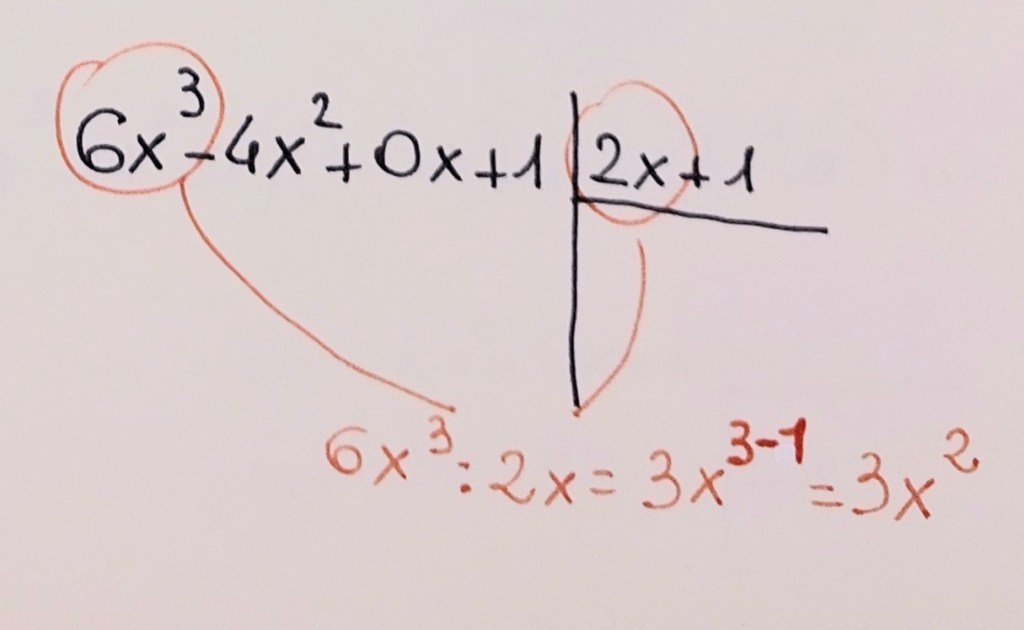 6x³-4x²+0x+1 | 2x+1
6x³:2x=3x³⁻¹=3x²